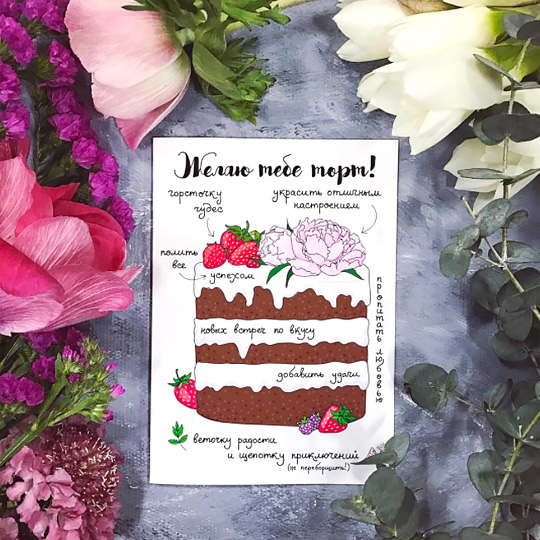 Желаю тебе торт!
горсточку
чудес
украсить отличным
настроением
полить
все
успехом
пропитать любовью
новых встреч по вкусу
добавить удачи
веточку радости
и щепотку приключений
(не переборщить!)